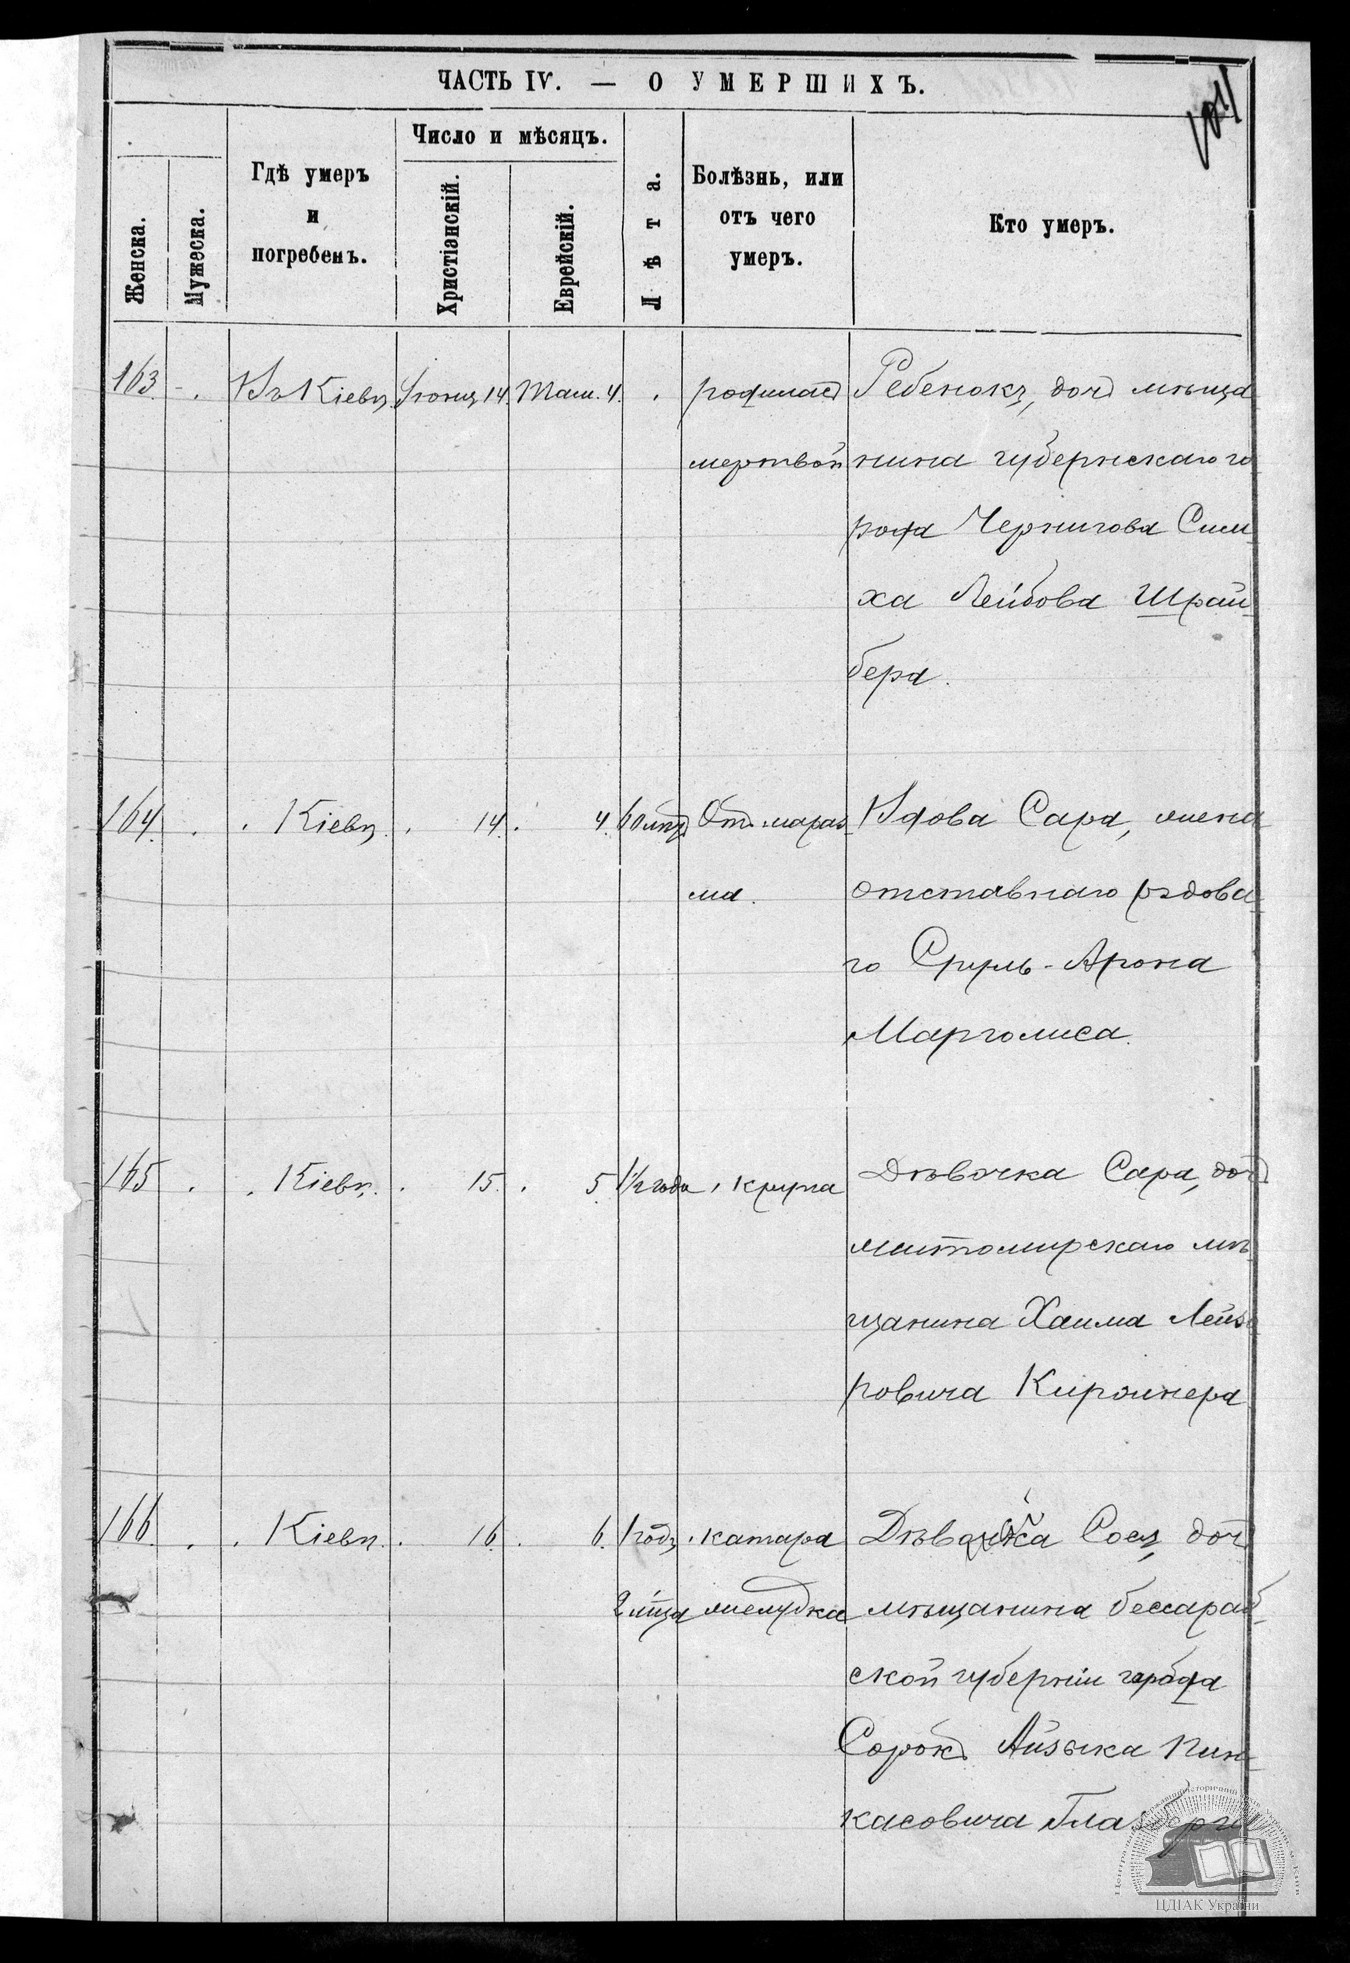 ЧАСТЬ IV. — О УМЕРШИХЪ.
Женска.
Мужеска.
Гдѣ умеръ
и
погребенъ.
Число и мѣсяцъ.
Христіанскій.
Еврейскій.
Лѣта.
Болѣзнь, или
отъ чего
умеръ.
Кто умеръ.
163 Въ Кіевѣ Іюня 14. Там. 4. родилась Ребенокъ, дочь мѣща
мертвой нина губернскаго го
рода Чернигова Сим-
ха Лейбова Шрай-
бера.
164. Кіевѣ. 14. 4. 60 лѣтъ Отъ мараз Вдова Сара, жена
ма. отставнаго рядова-
го Сруль-Арона
Марголиса.
165 Кіевѣ. 15. 5 1½ года крупа Дѣвочка Сара, дочь
житомирскаго мѣ-
щанина Хаима Лейзе
ровича
166 Кіевѣ. 16. 6. 1 годъ катара Дѣвочка дочь
2 м‑ца желудка мѣщанина бессараб-
ской губерніи города
Сорокъ Айзыка Пин-
касовича
ЦДІАК України